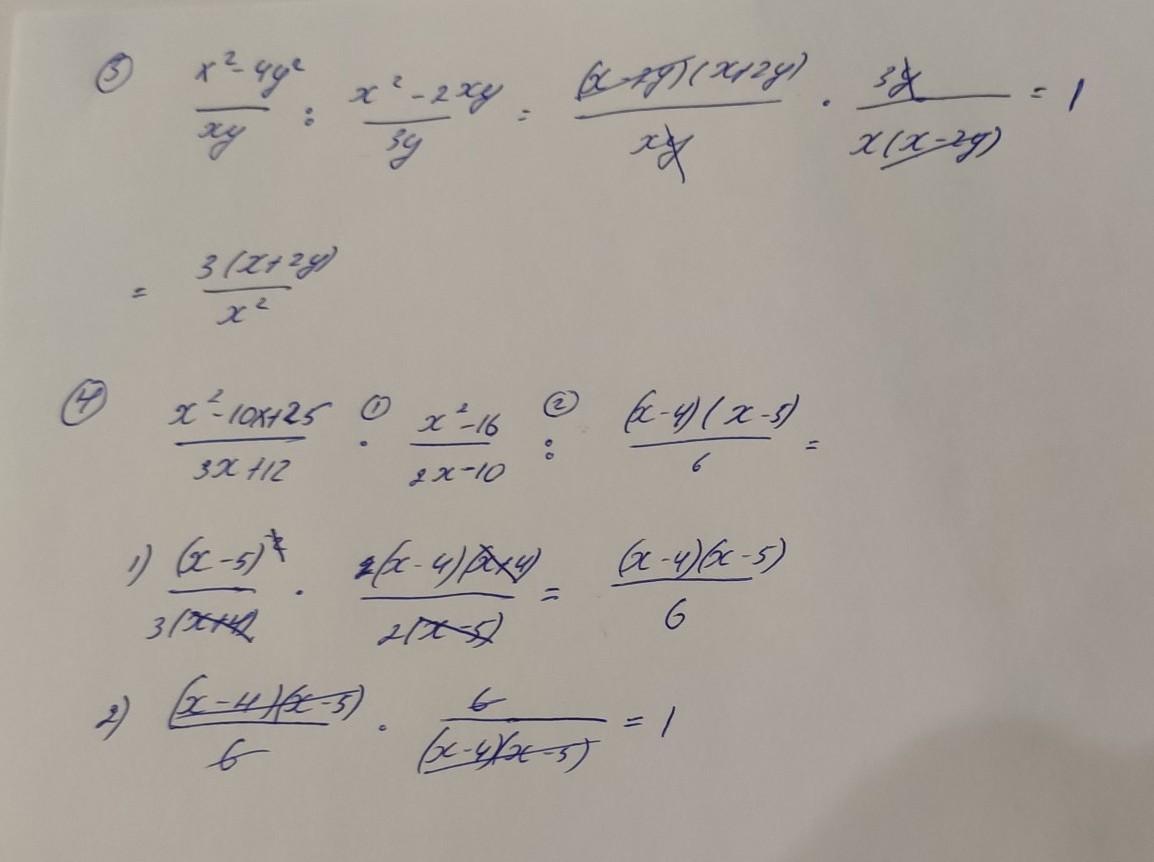 ③ (x²-4y²)/(xy) : (x²-2xy)/(3y) = ((x-2y)(x+2y))/(xy) · (3y)/(x(x-2y)) = 1
= (3(x+2y))/(x²)
④ (x²-10x+25)/(3x+12) ①· (x²-16)/(2x-10) ②: ((x-4)(x-5))/6 =
1) (x-5)²/(3(x+4)) · (2(x-4)(x+4))/(2(x-5)) = ((x-4)(x-5))/6
2) ((x-4)(x-5))/6 · 6/((x-4)(x-5)) = 1